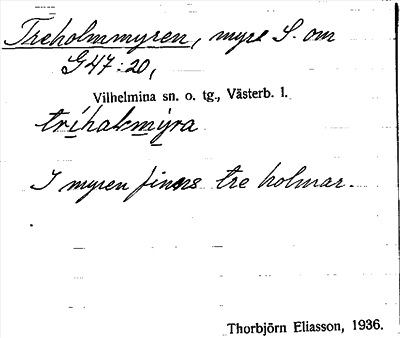 Treholmmyren, myr S. om
G47:20,
Vilhelmina sn. o. tg., Västerb. l.
I myren finns tre holmar.
Thorbjörn Eliasson, 1936.